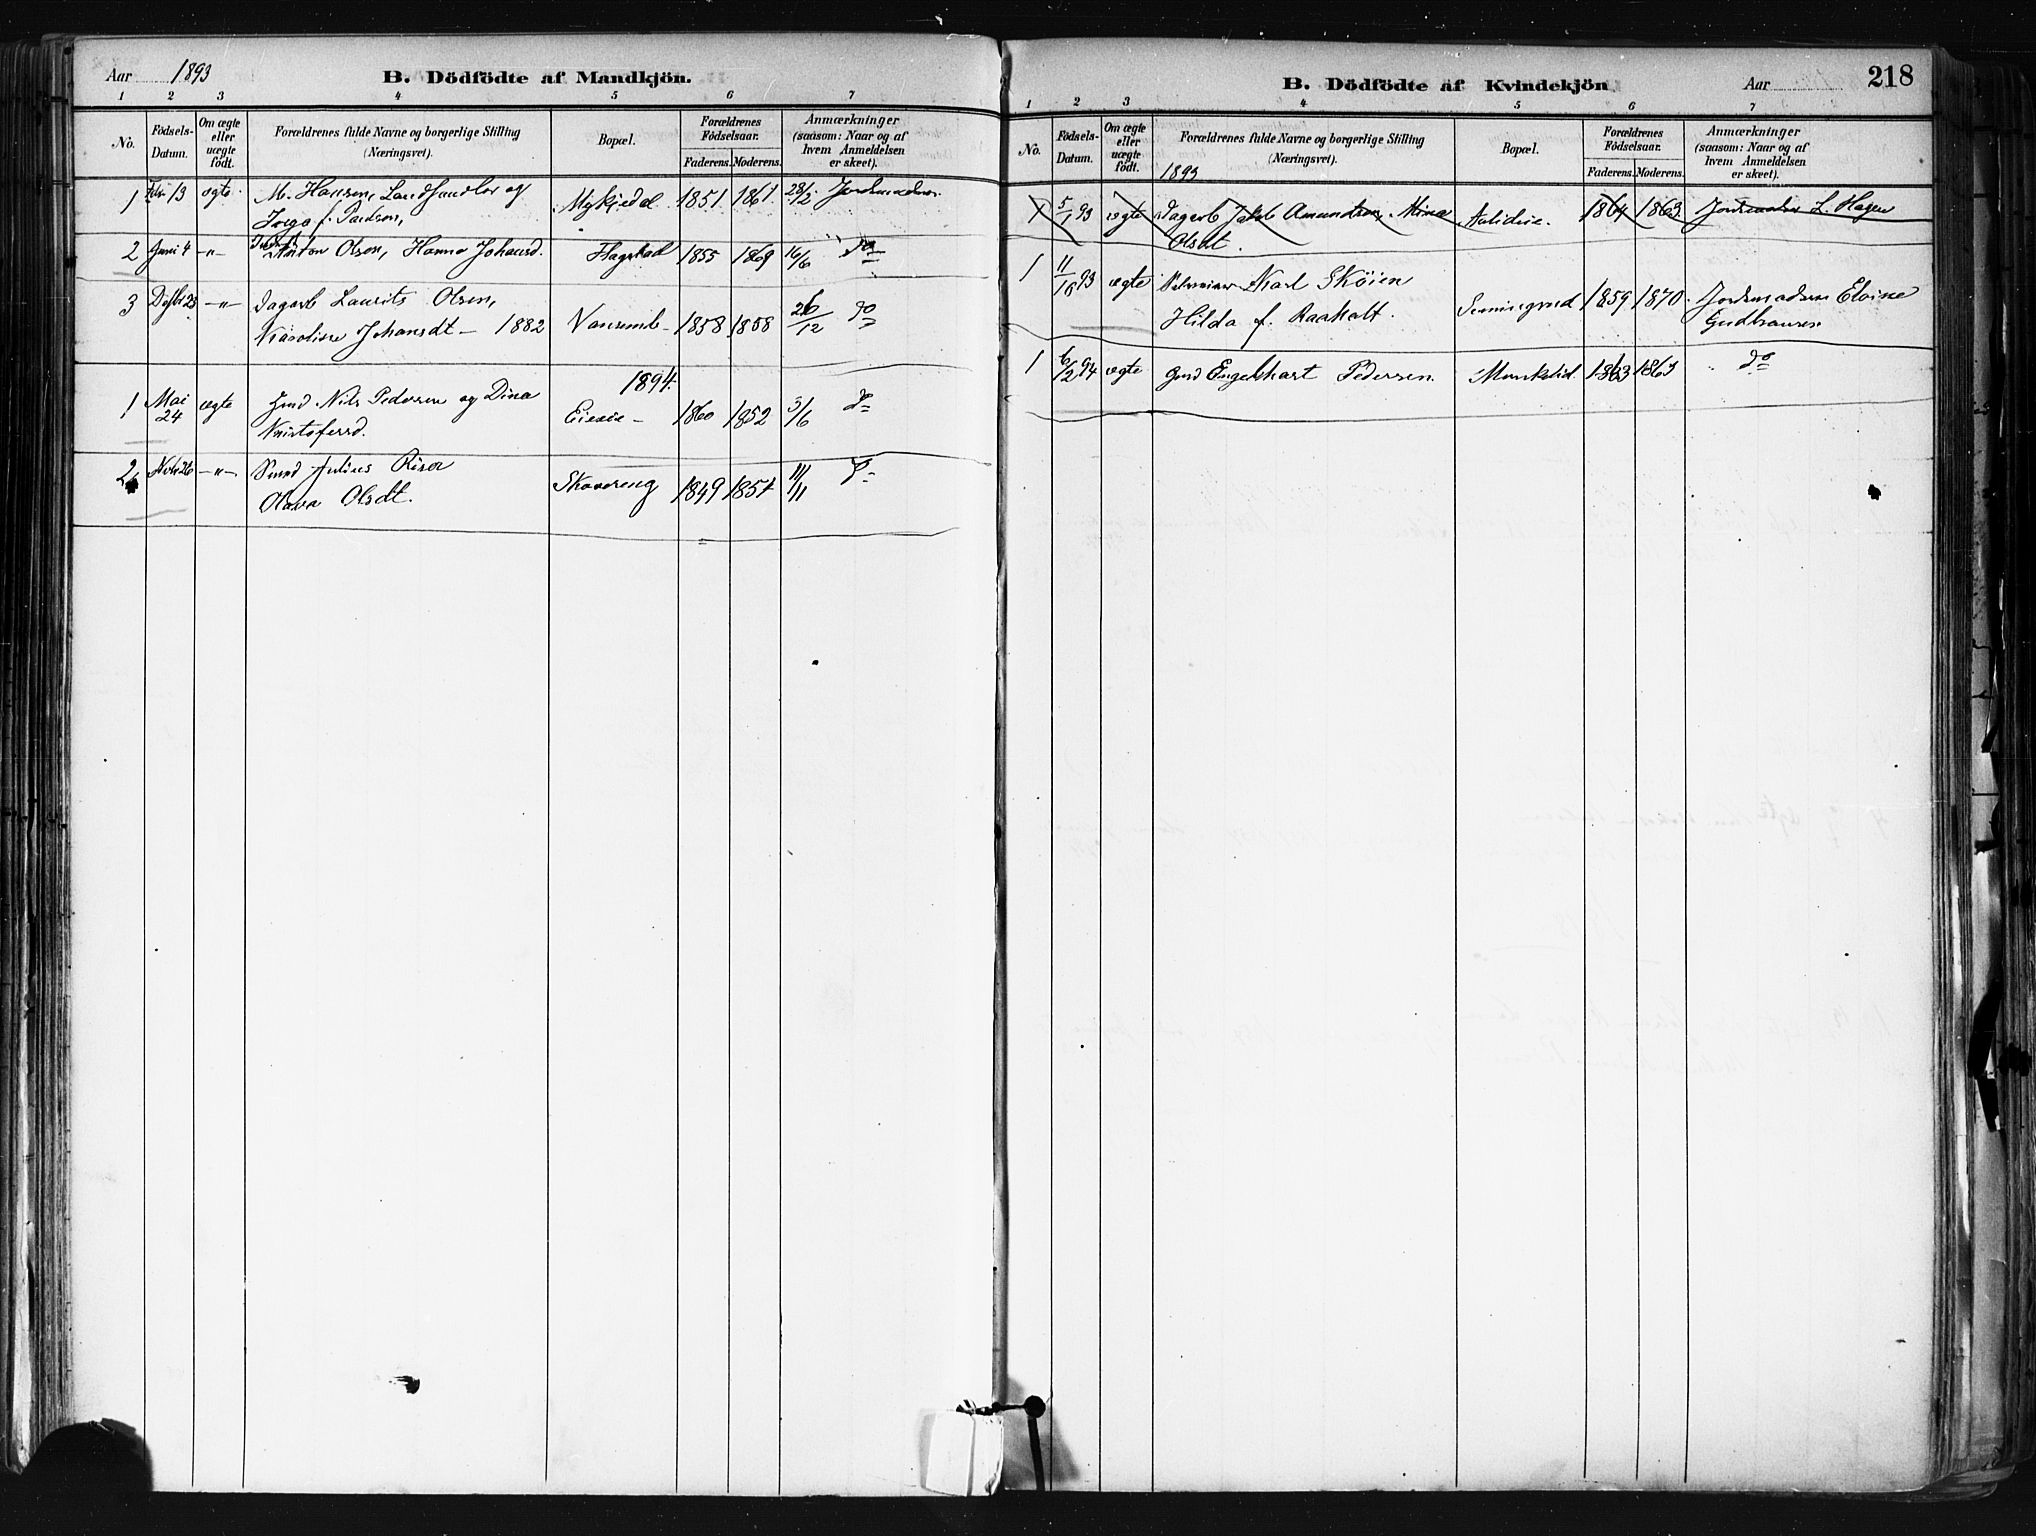 Aar 1893 B. Dödfödte af Mandkjön.
1 2 3 4 5 6 7
No. Födsels-Datum. Om ægte eller uægte födt. Forældrenes fulde Navne og borgerlige Stilling (Næringsvei). Bopæl. Forældrenes Födselsaar. Faderens. Moderens. Anmærkninger (saasom: Naar og af hvem Anmeldelsen er skeet).
1 Febr 13 ægte. M. Hansen, Landhandler og Mykjedal 1851 1861. 28/2. Jordmoderen
Inga f. Paulsen,
2 Juni 4 -"- Anton Olsen, Hanna Johansd. Hagstad 1855 1869 16/6 do
3 -"- Dagarb Laurits Olsen,
Karoline Johansdt - 1882 Vansemb - 1858 1858 26/12 do
1894.
1 Mai 24 ægte Gmd Nils Pedersen og Dina Eiesie - 1860 1852 3/6 do
Kristofersd.
2 Novb 26 -"- Smed Julius Riser Skovreng 1849 1854 11/11 do
Olava Olsdt.
B. Dödfödte af Kvindekjön Aar 218
1 2 3 4 5 6 7
No. Födsels-Datum. Om ægte eller uægte födt. Forældrenes fulde Navne og borgerlige Stilling (Næringsvei). Bopæl. Forældrenes Födselsaar. Faderens. Moderens. Anmærkninger (saasom: Naar og af hvem Anmeldelsen er skeet).
1893
1 5/1 93 ægte Dagarb Jakob Amundsen, Mina 1864 1863. Jordmoder L. Hagen
Olsdt.
1 11/10 93 ægte Karl Sköien 1859 1870. Jordmoderen Eloine
Hilda f. Raaholt. Gudbrandsen
1 6/2 94 ægte Gmd Engelhart Pedersen. Munkelid. 1863 1863 " do